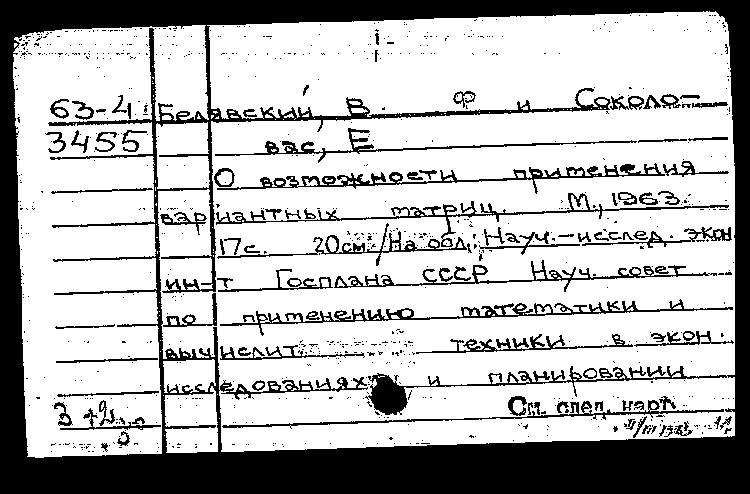 63-4 Белявский, В. Ф и Соколо-
3455 вас, Е
О возможности применения
вариантных матриц. М., 1963.
17с. 20см. /На обл.: Науч.-исслед. экон
ин-т Госплана СССР Науч. совет
по применению математики и
вычислит. техники в экон.
исследованиях и планировании
См. след. карт.